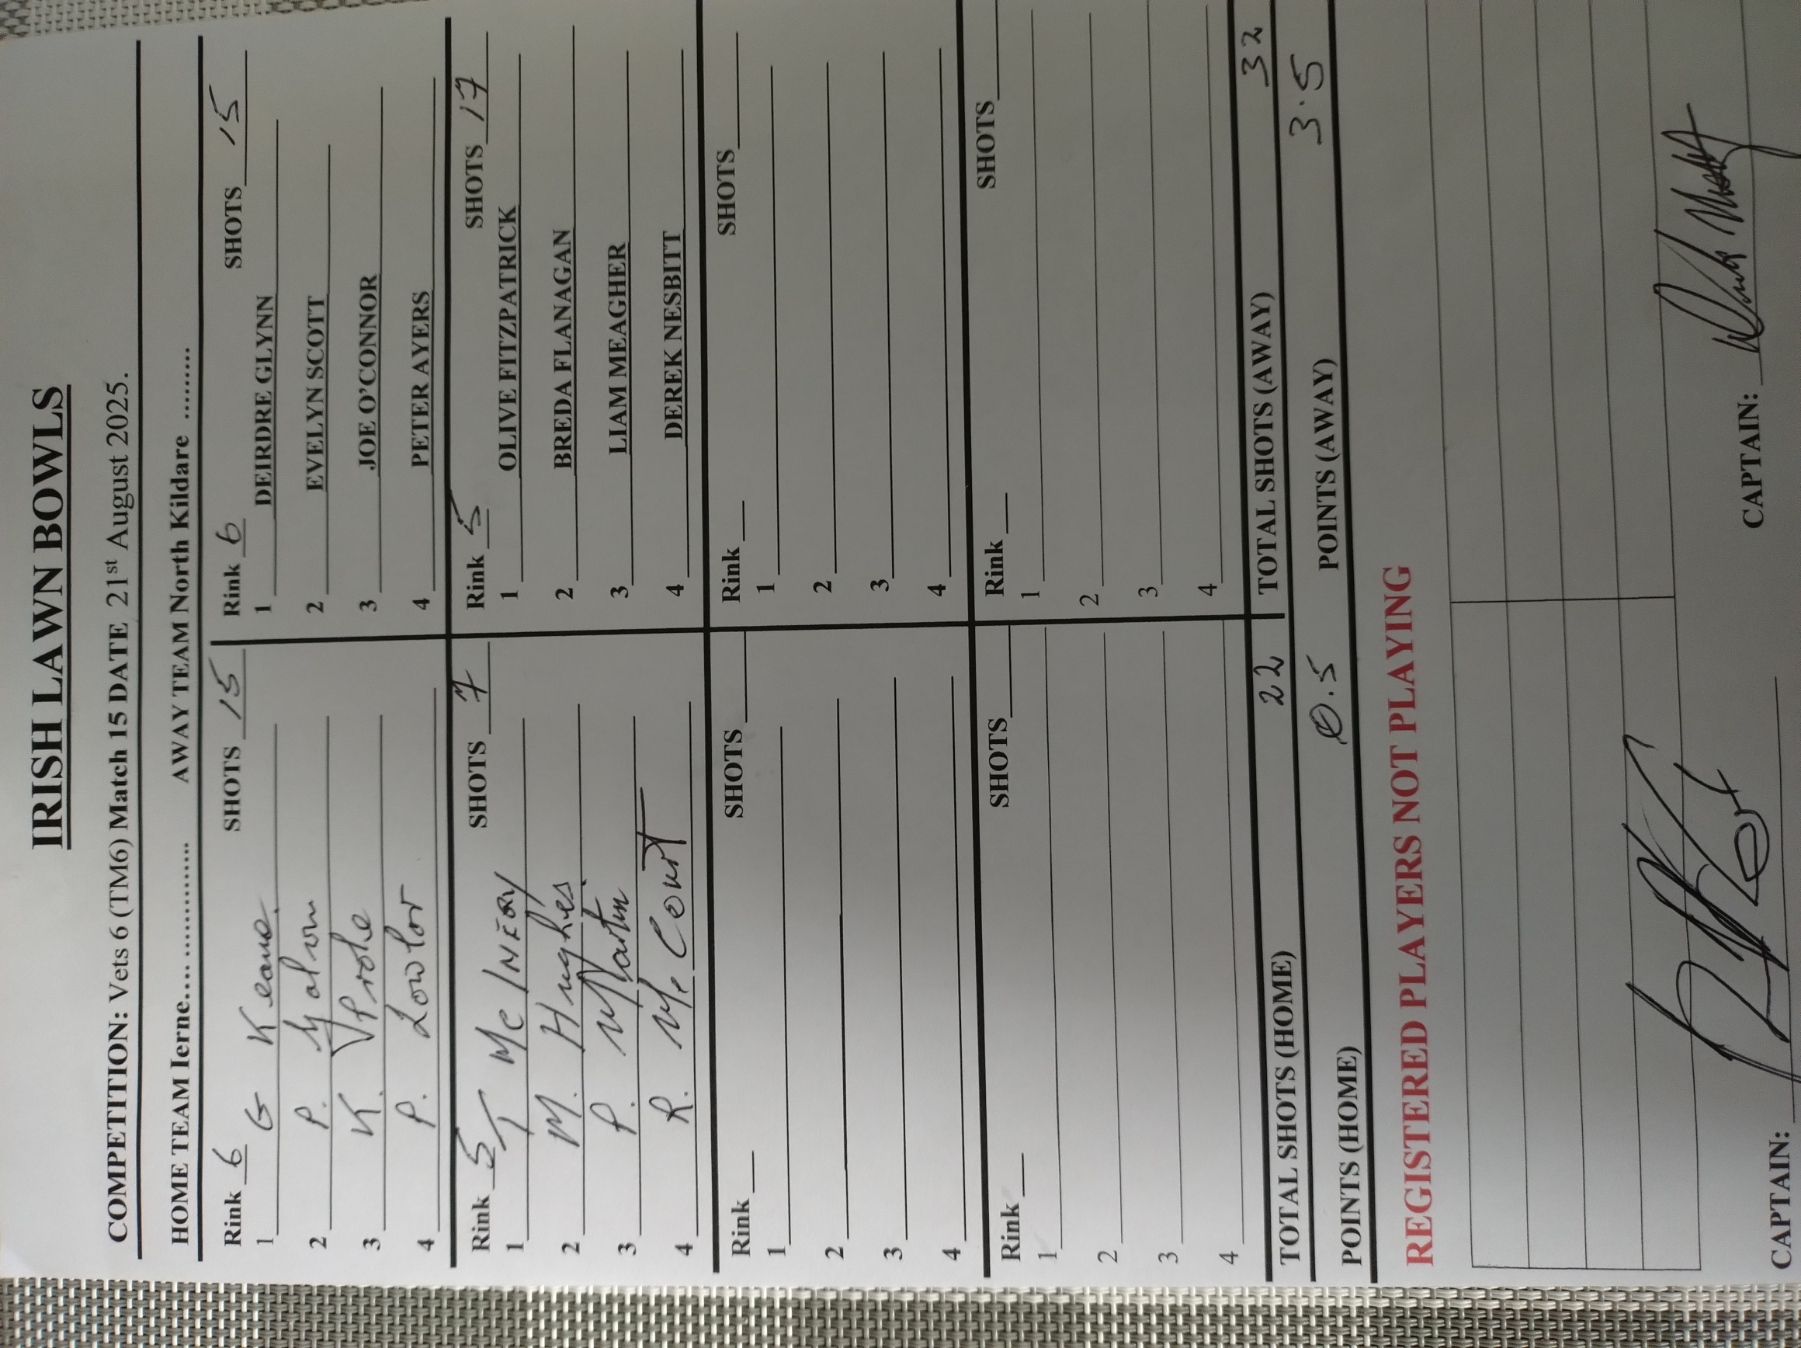 IRISH LAWN BOWLS
COMPETITION: Vets 6 (TM6) Match 15 DATE 21st August 2025.
HOME TEAM Ierne................ AWAY TEAM North Kildare ........
Rink 6 SHOTS 15 Rink 6 SHOTS 15
1 G Keane 1 DEIRDRE GLYNN
2 P. 2 EVELYN SCOTT
3 K. Prole 3 JOE O'CONNOR
4 P. Lowlor 4 PETER AYERS
Rink 5 SHOTS 7 Rink 5 SHOTS 17
1 T McINERY 1 OLIVE FITZPATRICK
2 M. Hughes 2 BREDA FLANAGAN
3 P. Martin 3 LIAM MEAGHER
4 R. McCourt 4 DEREK NESBITT
Rink SHOTS Rink SHOTS
1 1
2 2
3 3
4 4
Rink SHOTS Rink SHOTS
1 1
2 2
3 3
4 4
TOTAL SHOTS (HOME) 22 TOTAL SHOTS (AWAY) 32
POINTS (HOME) 0.5 POINTS (AWAY) 3.5
REGISTERED PLAYERS NOT PLAYING
CAPTAIN: CAPTAIN: